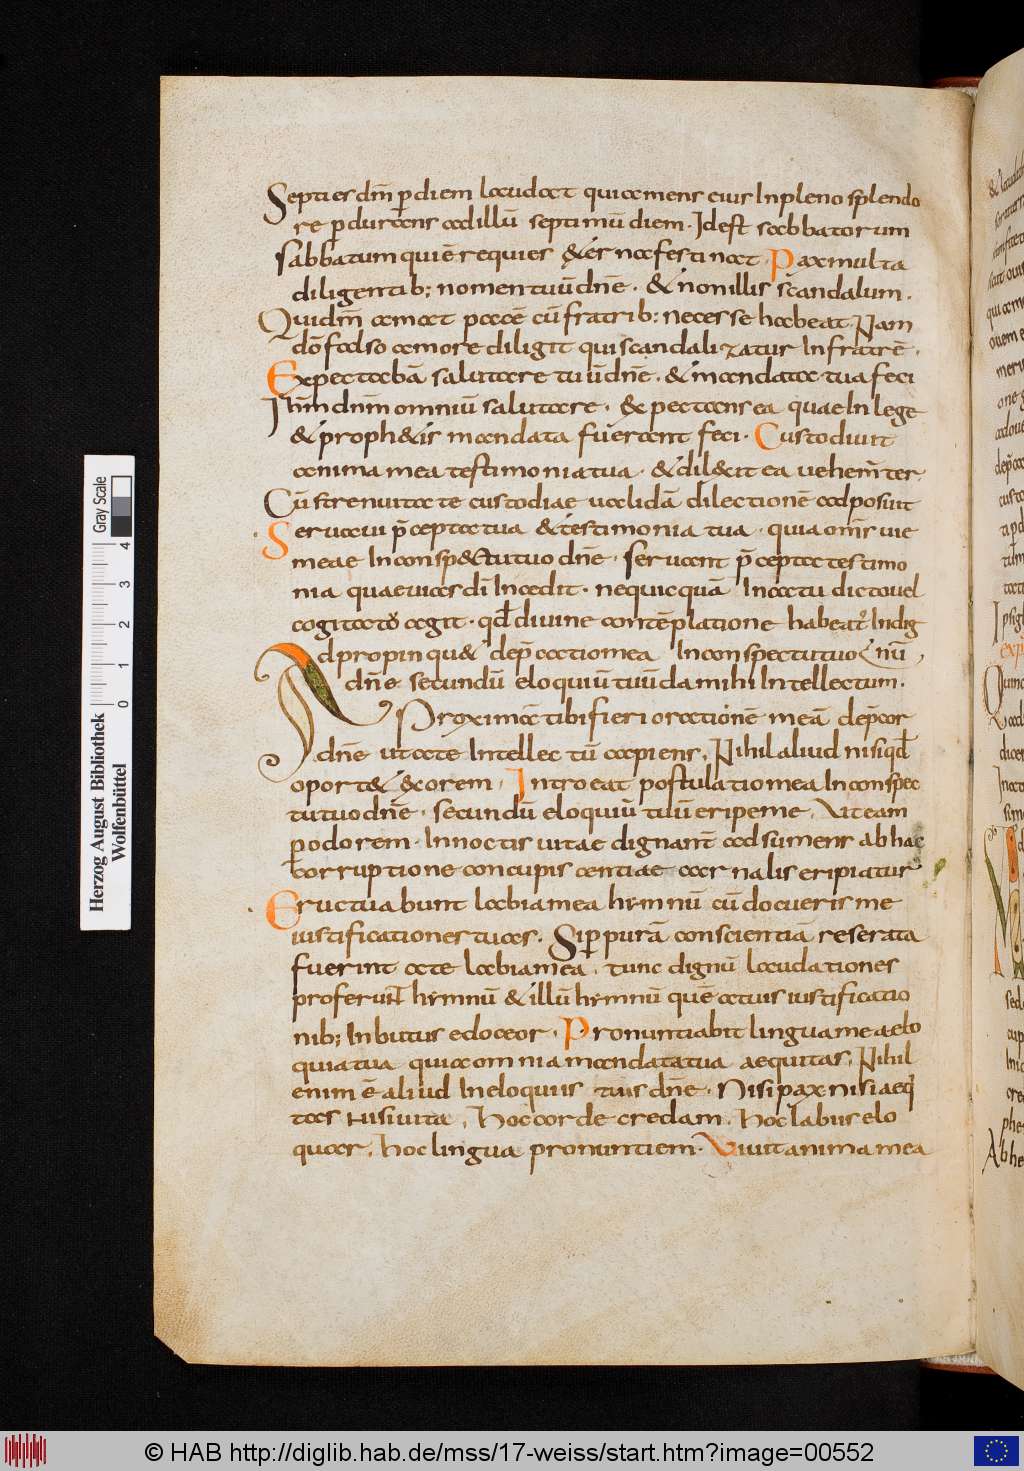 Septies dm̄ p̱ diem laudat quia mens eius In pleno splendo
re p̱durans ad illū septimū diem · Idest sabbatorum
sabbatum qui ē requies & ę́rna festinat · Pax multa
diligentib; nomen tuū dn̄e · & non illis scandalum ·
Qui dm̄ amat pacē cū fratrib: necesse habeat. Nam
dō falso amore diligit qui scandalizatur In fratrē ·
Expectabā salutare tuū dn̄e · & mandata tua feci
Itm̄ dnm̄ omniū salutare · & pectans ea quae In lege
& proph&is mandata fuerant feci · Custodiuit
anima mea testimonia tua · & dil&it ea uehem̄ter
Cū strenuitate custodiae ualidā dilectionē adposuit
Seruaui p̄cepta tua & testimonia tua · quia om̄s uie
meae In consp&tu tuo dn̄e · seruant p̄cepta testimo
nia quae uias dī Incedit · nequicquā In actu dicto uel
cogitato agit · qđ divine contēplatione habeat͛ Indig
Adpropinqu& dep̄catio mea In conspectu tuo nū
dn̄e secundū eloquiū tuū da mihi Intellectum ·
Proximat tibi fieri orationē meā dep̄cor
dn̄e ut a te Intellectū accipiens, Nihil aliud nisi qđ
oport& &orem · Intro eat postulatio mea In conspec
tu tuo dn̄e · secundū eloquiū tuū eripe me . Ut eam
p̱ odorem · In noctis uitae dignant̄ adsumens ab hac
corruptione concupiscentiae carnalis eripiatur
Eructuabunt labia mea hymnū cū docueris me
iustificationes tuas. Si p̱ purā conscientiā reserata
fuerint a te labia mea , tunc dignū laudationes
proferunt hymnū & illū hymnū quē a tuis iustificatio
nib; Inbutus edocear · Pronuntiabit lingua mea elo
quia tua quia omnia mandata tua aequitas, Nihil
enim ē aliud In eloquiis tuis dn̄e · Nisi pax nisi aeq
tas nisi uita , hoc corde credam . hoc labiis elo
quar , hoc lingua pronuntiem · Uiuit anima mea
Herzog August Bibliothek
Wolfenbüttel
0 1 2 3 4
Gray Scale
© HAB http://diglib.hab.de/mss/17-weiss/start.htm?image=00552